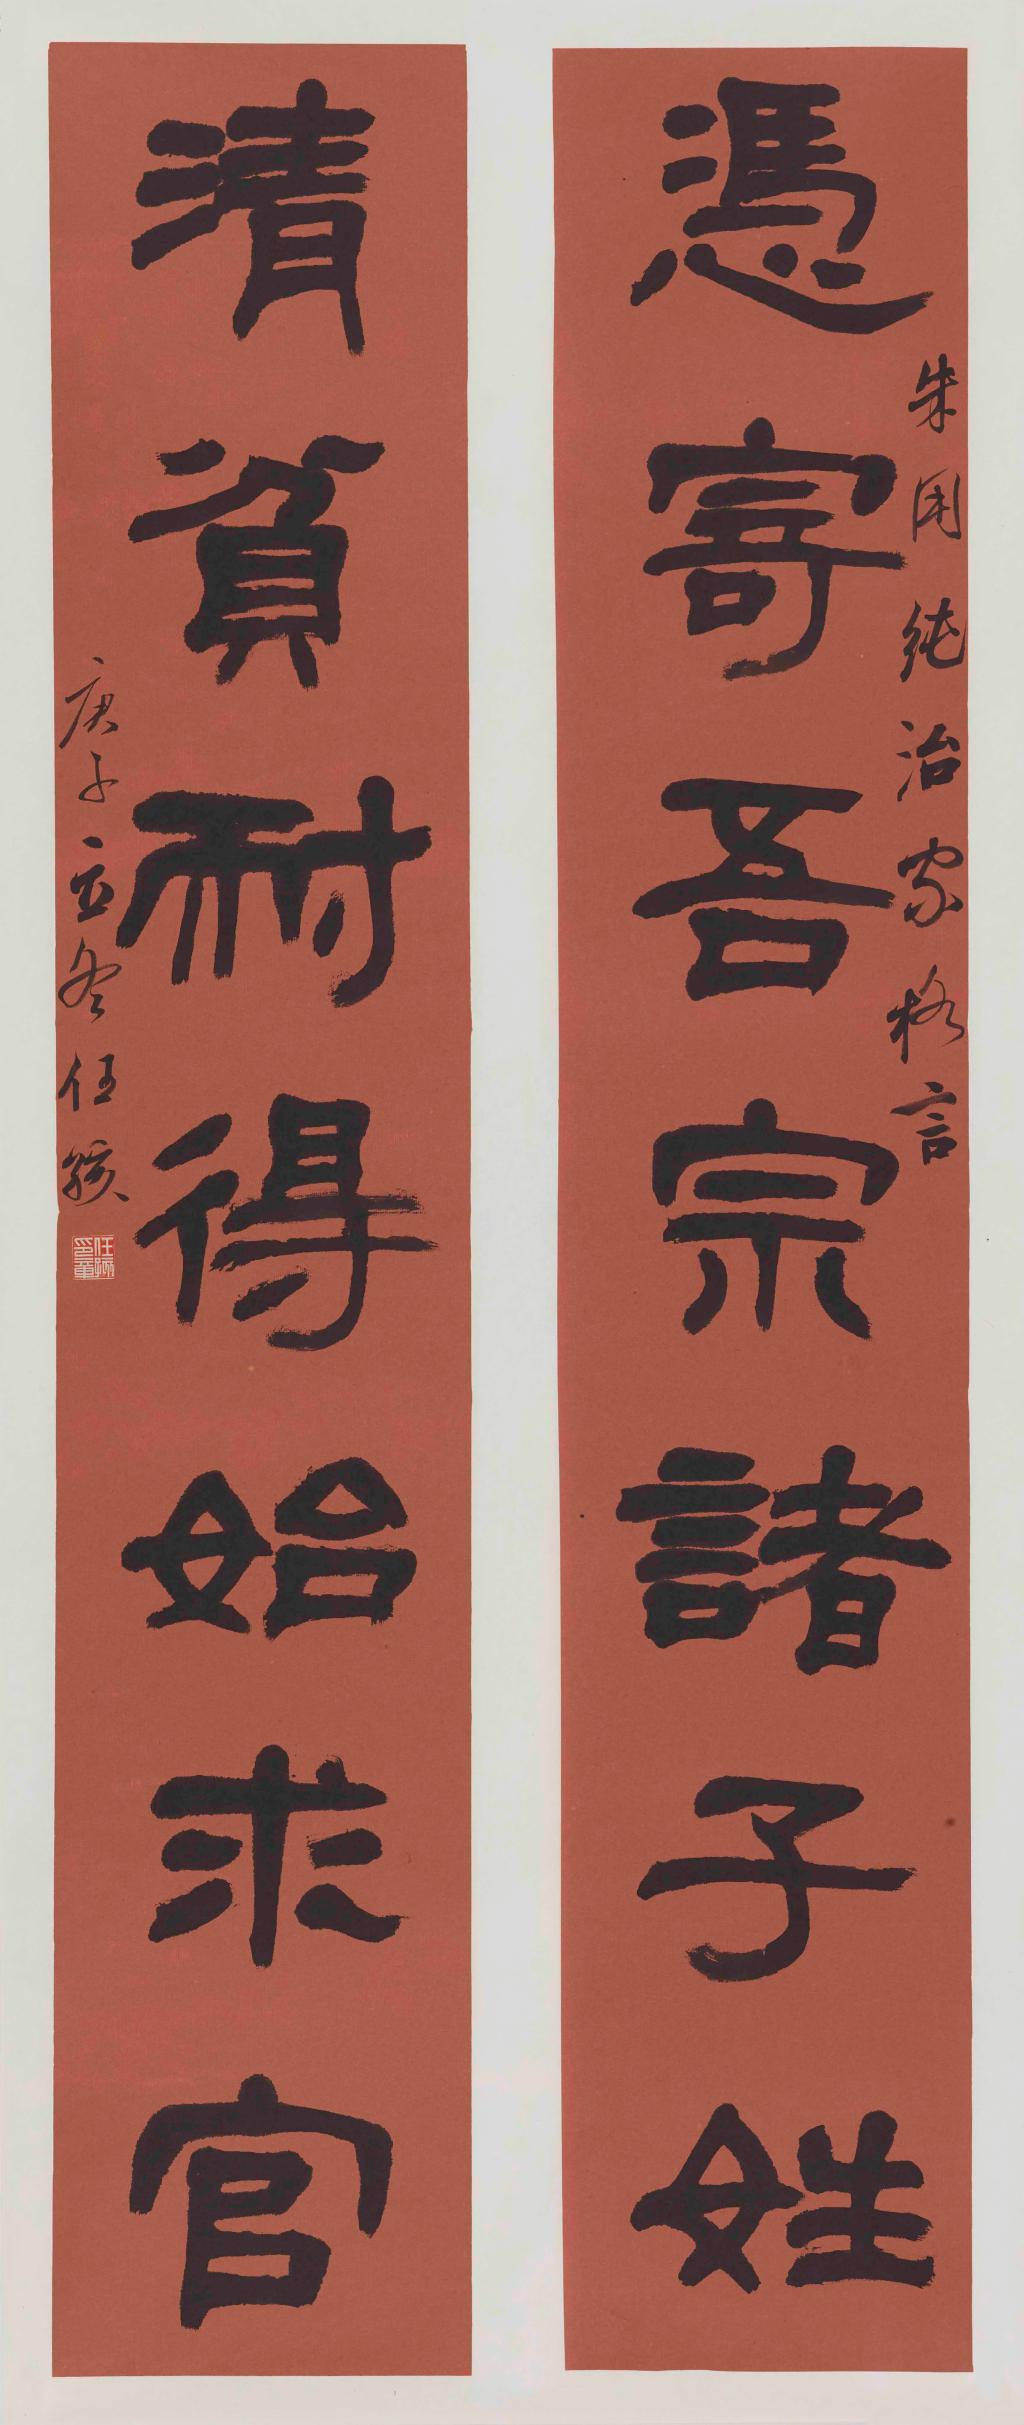 憑寄吾宗諸子姓
朱用純治家格言
清貧耐得始求官
庚子立冬任